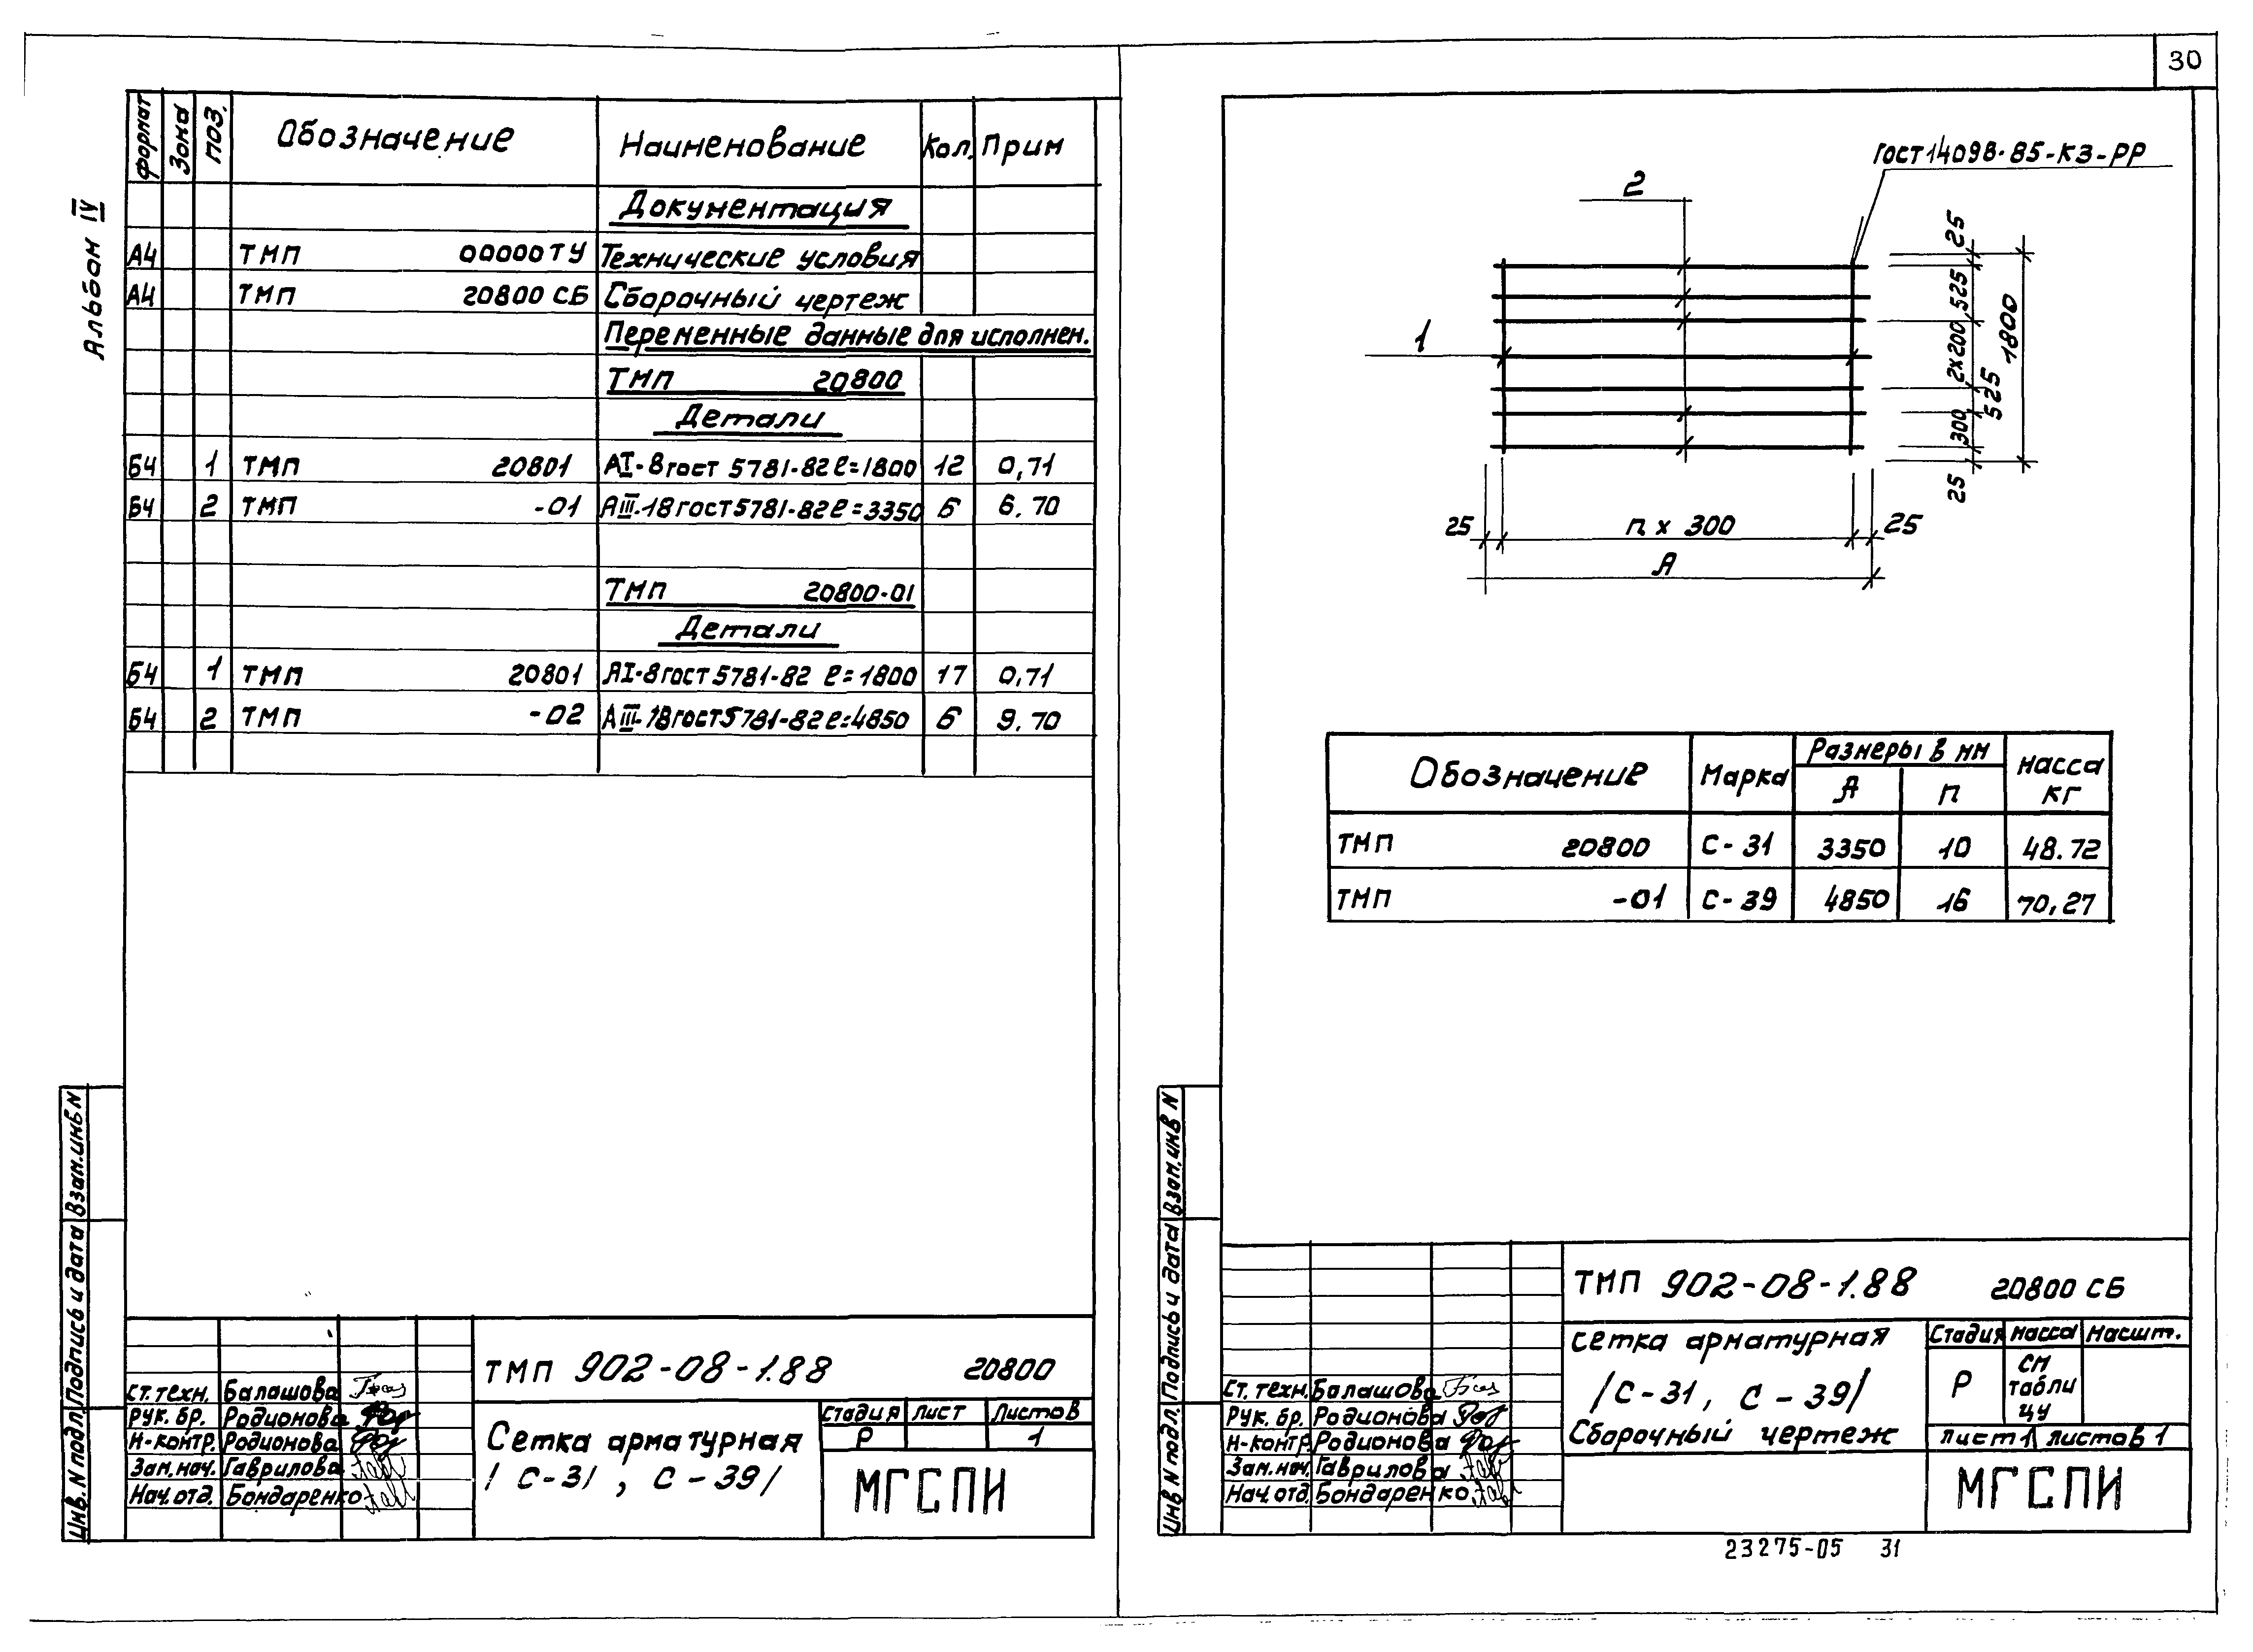 30
Альбом IV
Формат Зона Поз. Обозначение Наименование Кол. Прим
Документация
А4 ТМП 00000ТУ Технические условия
А4 ТМП 20800 СБ Сборочный чертеж
Переменные данные для исполнен.
ТМП 20800
Детали
Б4 1 ТМП 20801 АI-8 гост 5781-82 ℓ=1800 12 0,71
Б4 2 ТМП -01 АIII-18 гост 5781-82 ℓ=3350 6 6.70
ТМП 20800-01
Детали
Б4 1 ТМП 20801 АI-8 гост 5781-82 ℓ=1800 17 0,71
Б4 2 ТМП -02 АIII-18 гост 5781-82 ℓ=4850 6 9.70
Взам.инв N
Подпись и дата
Инв. N подл.
ТМП 902-08-1.88 20800
Ст.техн. Балашова
Рук. бр. Родионова
Н-контр. Родионова
Зам.нач. Гаврилова
Нач.отд. Бондаренко
Сетка арматурная
/ С-31, С-39/
Стадия Лист Листов
Р 1
МГСПИ
гост 14098-85-К3-РР
2
1
25
525
2х200
525
300
25
1800
25 n x 300 25
А
Обозначение Марка Размеры в мм Масса кг
А n
ТМП 20800 С-31 3350 10 48.72
ТМП -01 С-39 4850 16 70,27
Взам.инв N
Подпись и дата
Инв N подл.
ТМП 902-08-1.88 20800 СБ
Ст.техн. Балашова
Рук. бр. Родионова
Н-контр. Родионова
Зам.нач. Гаврилова
Нач.отд. Бондаренко
Сетка арматурная
/С-31, С-39/
Сборочный чертеж
Стадия Масса Масшт.
Р см табли цу
Лист 1 Листов 1
МГСПИ
23275-05 31